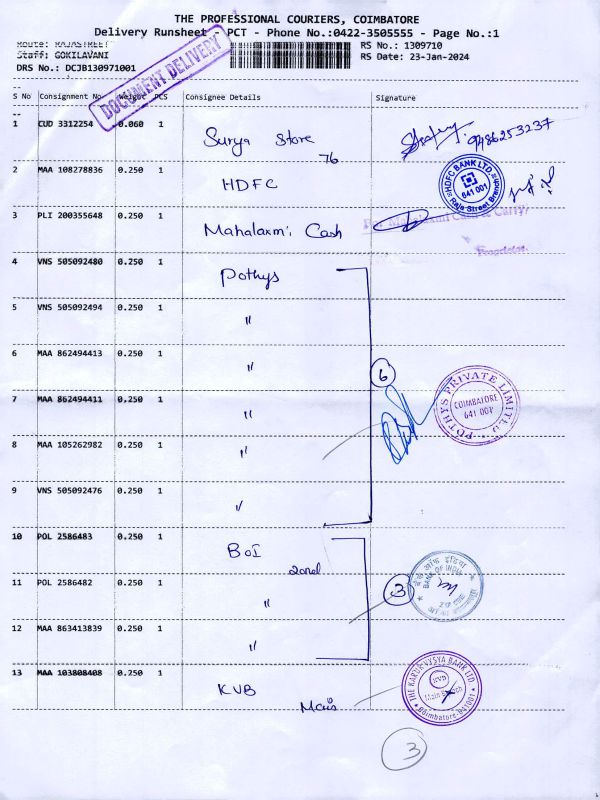 THE PROFESSIONAL COURIERS, COIMBATORE
Delivery Runsheet - PCT - Phone No.:0422-3505555 - Page No.:1
Route: RAJASTREET RS No.: 1309710
Staff: GOKILAVANI RS Date: 23-Jan-2024
DRS No.: DCJB130971001
DOCUMENT DELIVERY
S No Consignment No. Weight PCS Consignee Details Signature
--
1 CUD 3312254 0.060 1 Surya Store 9486253237
76
2 MAA 108278836 0.250 1 HDFC
HDFC BANK LTD.
641 001
Raja Street Branch
3 PLI 200355648 0.250 1 Mahalaxmi Cash
Proprietor.
4 VNS 505092480 0.250 1 Pothys
5 VNS 505092494 0.250 1 "
6 MAA 862494413 0.250 1 "
6
7 MAA 862494411 0.250 1 "
POTHYS PRIVATE LIMITED
COIMBATORE
641 001
8 MAA 105262982 0.250 1 "
9 VNS 505092476 0.250 1 "
10 POL 2586483 0.250 1 BOI
2nd
11 POL 2586482 0.250 1 "
3
बैंक ऑफ इंडिया
BANK OF INDIA
12 MAA 863413839 0.250 1 "
13 MAA 103808408 0.250 1 KVB
Main
THE KARUR VYSYA BANK LTD
KVB
Main Branch
Coimbatore-641001
3